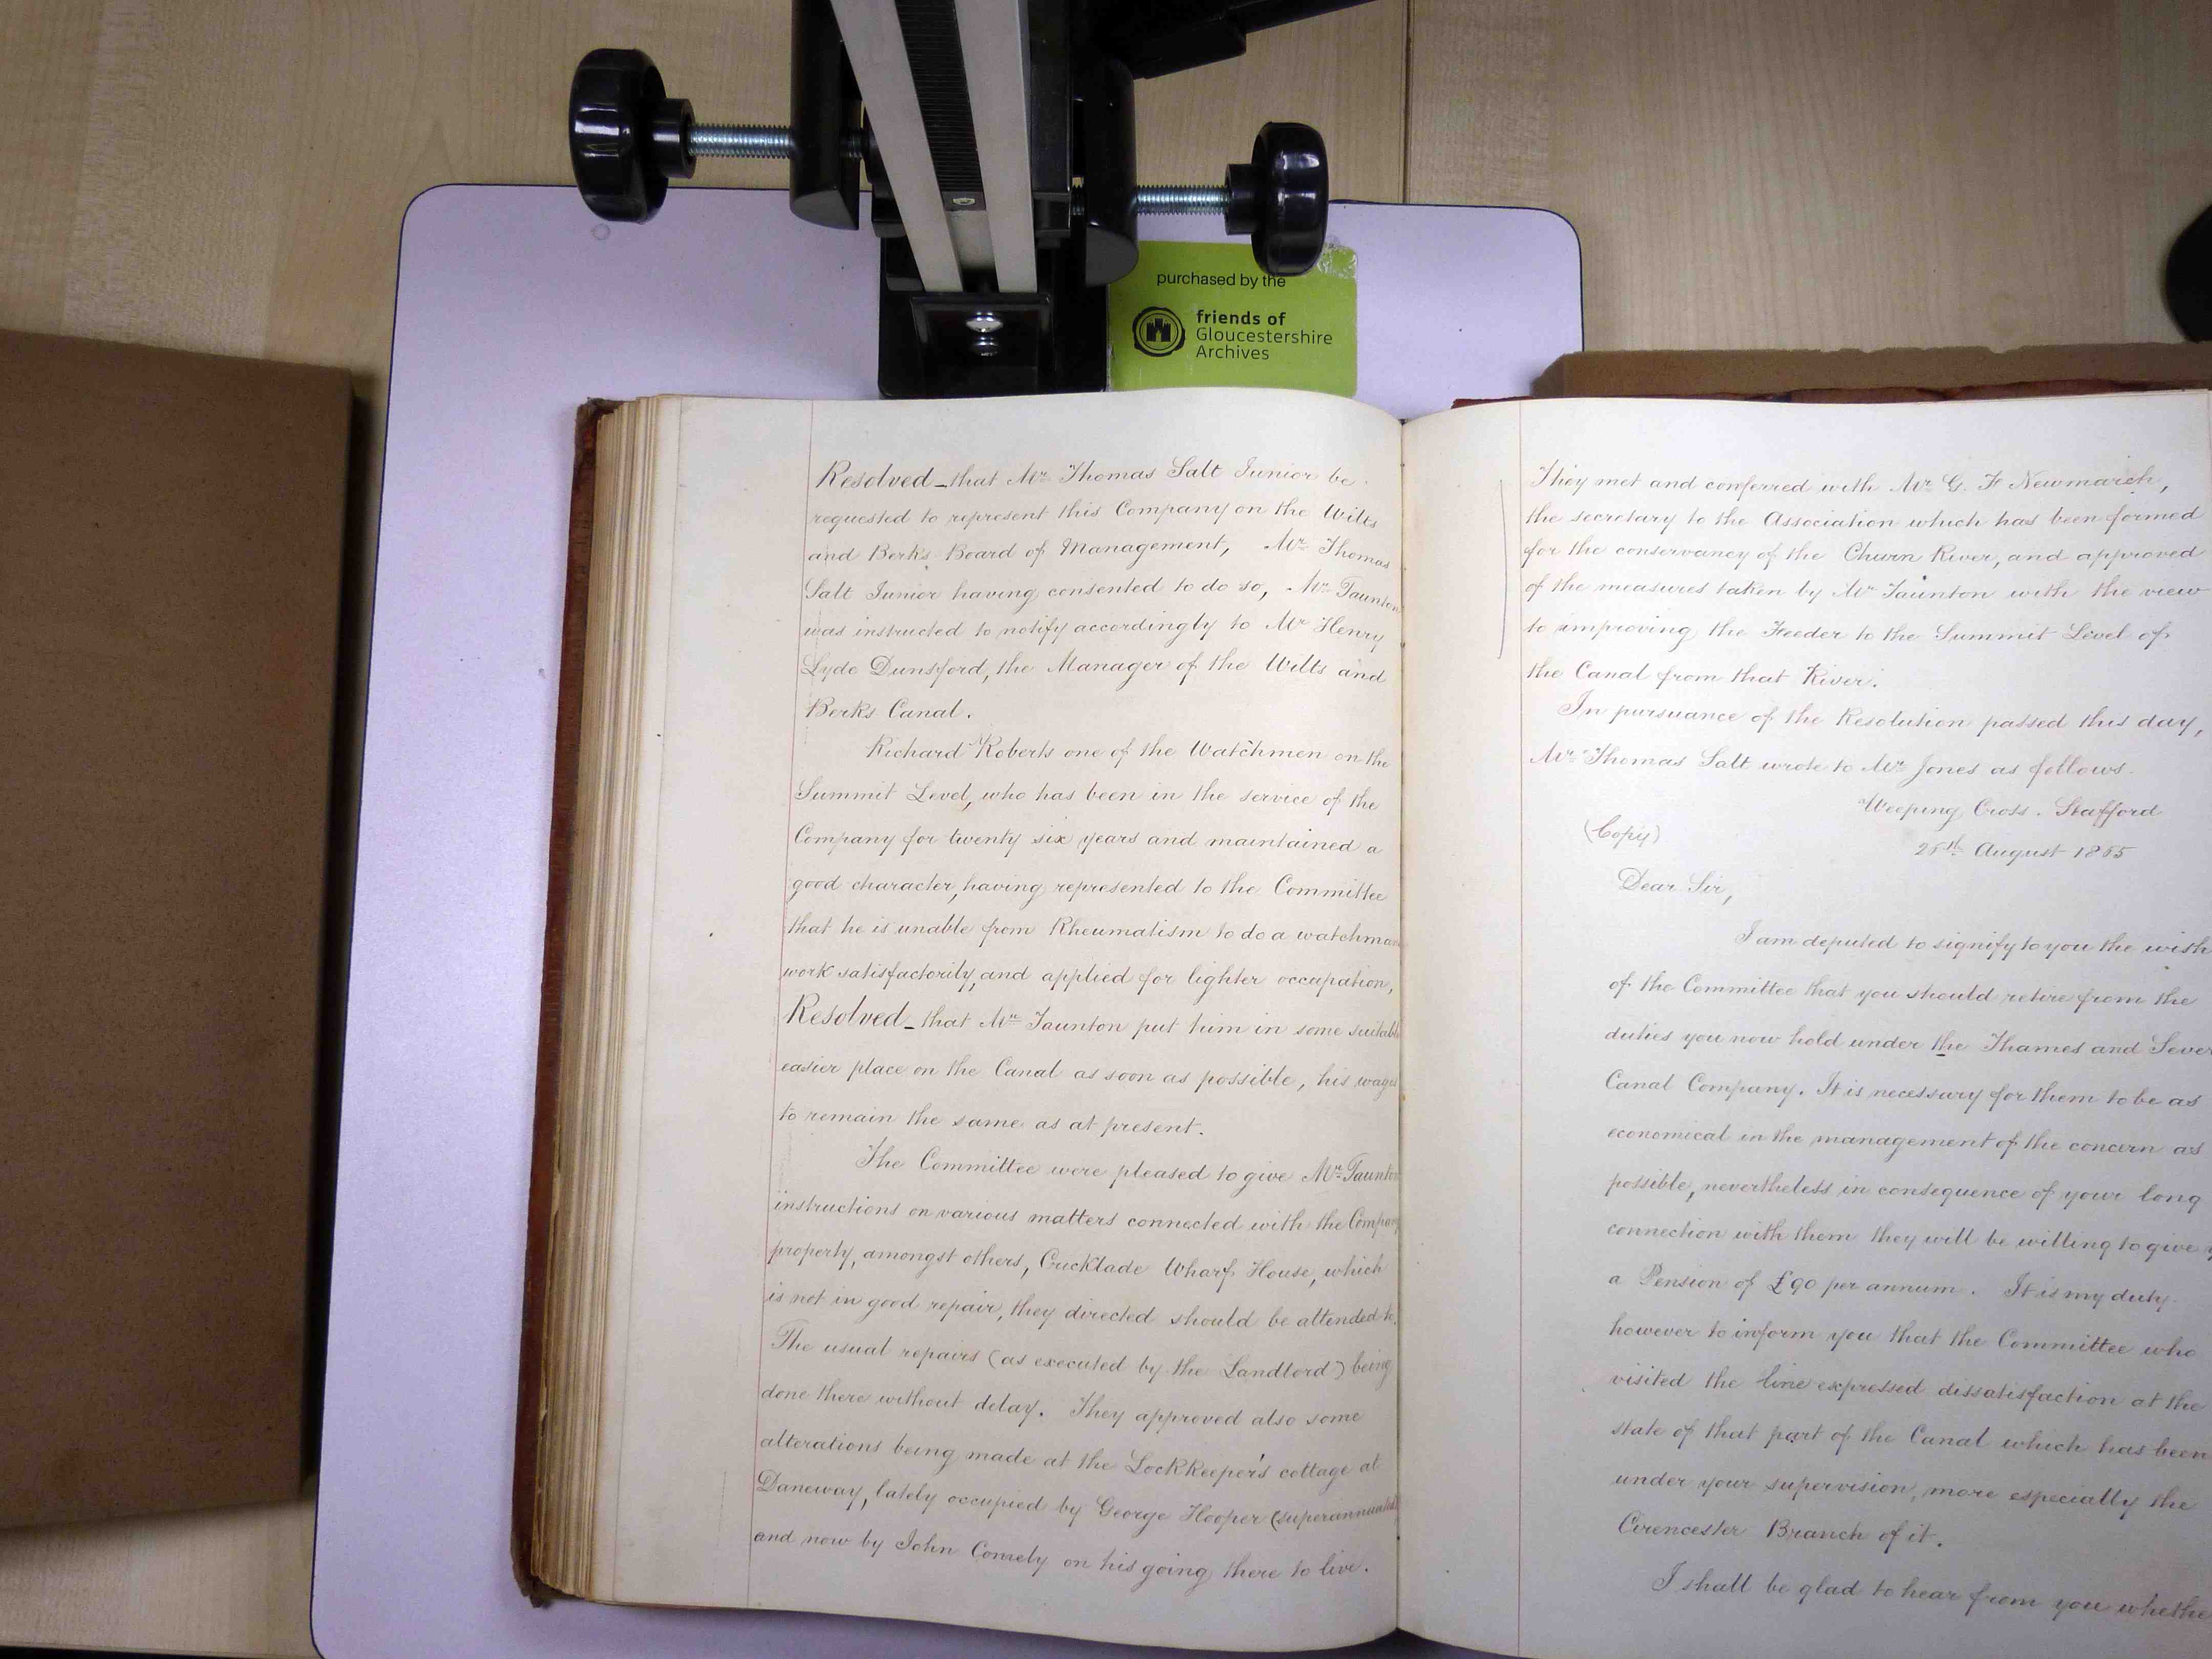 purchased by the
friends of
Gloucestershire
Archives
Resolved_that Mr Thomas Salt Junior be
requested to represent this Company on the Wilts
and Berks Board of Management, Mr Thomas
Salt Junior having consented to do so, Mr Taunton
was instructed to notify accordingly to Mr Henry
Lyde Dunsford, the Manager of the Wilts and
Berks Canal.
Richard Roberts one of the Watchmen on the
Summit Level, who has been in the service of the
Company for twenty six years and maintained a
good character, having represented to the Committee
that he is unable from Rheumatism to do a watchman
work satisfactorily, and applied for lighter occupation,
Resolved_that Mr Taunton put him in some suitable
easier place on the Canal as soon as possible, his wages
to remain the same as at present.
The Committee were pleased to give Mr Taunton
instructions on various matters connected with the Company
property, amongst others, Cricklade Wharf House, which
is not in good repair, they directed should be attended to.
The usual repairs (as executed by the Landlord) being
done there without delay. They approved also some
alterations being made at the Lockkeeper's cottage at
Daneway, lately occupied by George Hooper (superannuated
and now by John Comely on his going there to live.
They met and conferred with Mr G. F Newmarch,
the secretary to the Association which has been formed
for the conservancy of the Churn River, and approved
of the measures taken by Mr Taunton with the view
to improving the Feeder to the Summit Level of
the Canal from that River.
In pursuance of the Resolution passed this day,
Mr Thomas Salt wrote to Mr Jones as follows.
Weeping Cross. Stafford
(Copy)
August 1885
Dear Sir,
I am deputed to signify to you the wish
of the Committee that you should retire from the
duties you now hold under the Thames and Sever
Canal Company. It is necessary for them to be as
economical in the management of the concern as
possible, nevertheless in consequence of your long
connection with them they will be willing to give
a Pension of £90 per annum. It is my duty
however to inform you that the Committee who
visited the line expressed dissatisfaction at the
state of that part of the Canal which has been
under your supervision, more especially the
Cirencester Branch of it.
I shall be glad to hear from you whethe